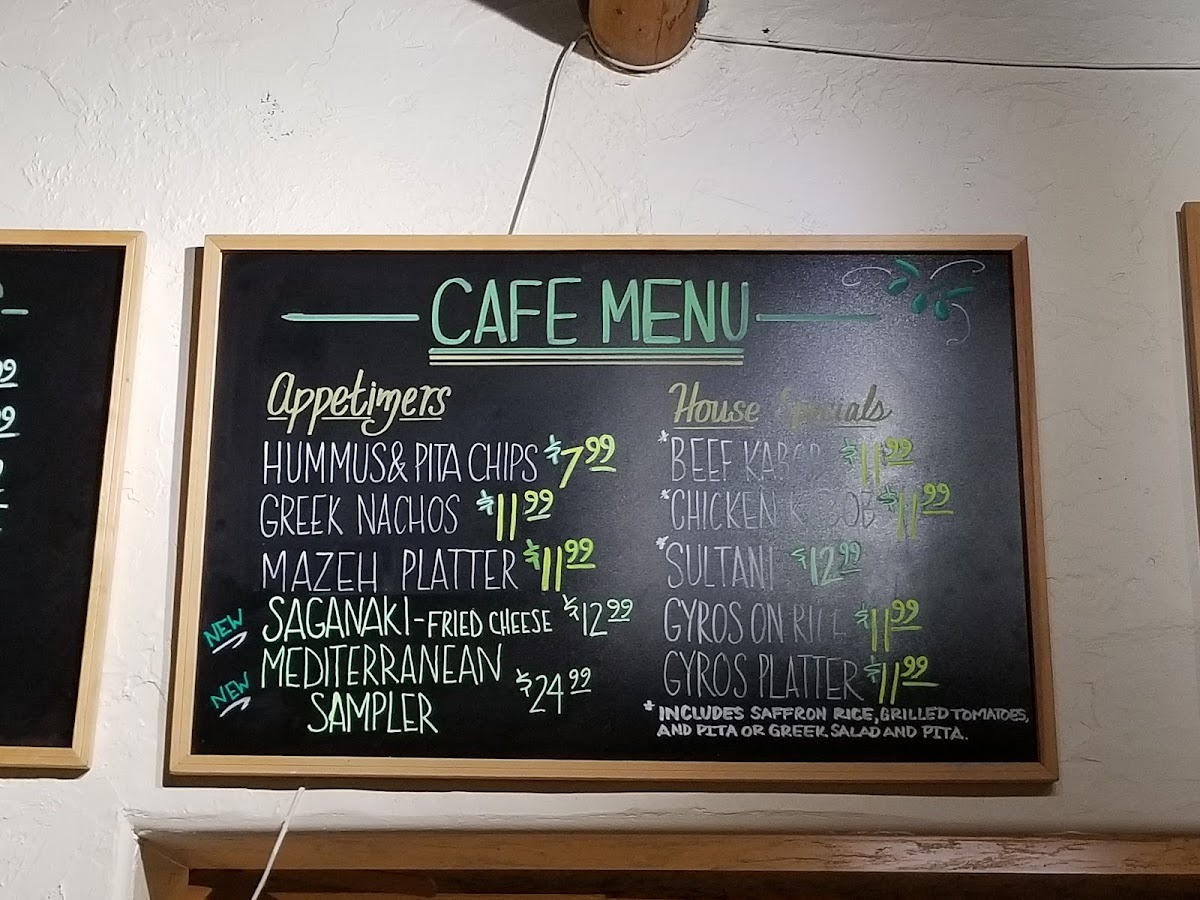 CAFE MENU
Appetizers
HUMMUS & PITA CHIPS $7.99
GREEK NACHOS $11.99
MAZEH PLATTER $11.99
NEW SAGANAKI - FRIED CHEESE $12.99
NEW MEDITERRANEAN
SAMPLER $24.99
House Specials
*BEEF KABOB $11.99
*CHICKEN KABOB $11.99
*SULTANI $12.99
GYROS ON RICE $11.99
GYROS PLATTER $11.99
* INCLUDES SAFFRON RICE, GRILLED TOMATOES,
AND PITA OR GREEK SALAD AND PITA.
99
99